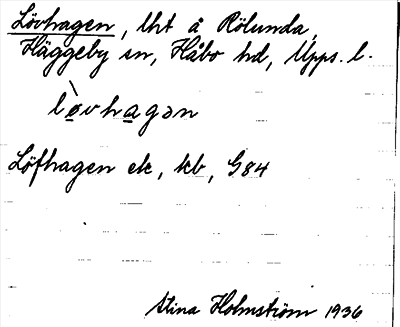 Lövhagen, lht å Rölunda,
Häggeby sn, Håbo hd, Upps. l.
lø̀vhagən
Löfhagen ek, kb, G84
Stina Holmström 1936